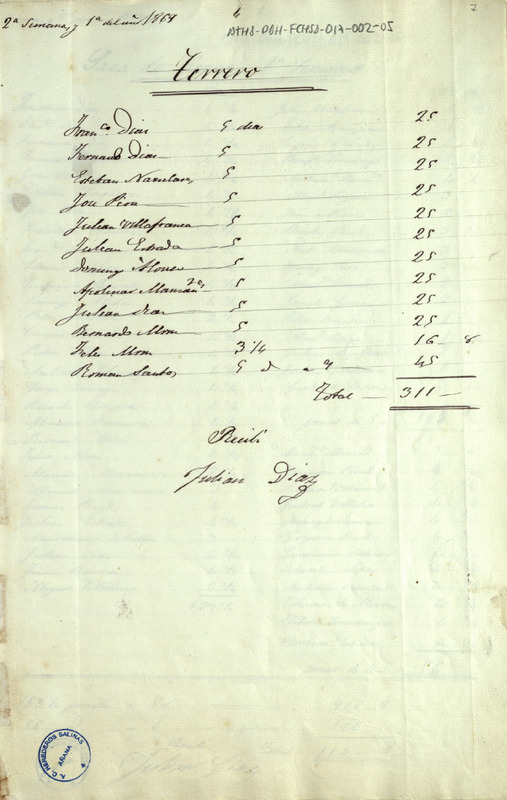 2ª Semana, y 1ª del año 1869
ATHA-DAH-FCHSA-017-002-05
7
Terrero
Franco. Diaz 5 dia 25
Fernando Diaz 5 25
Esteban 5 25
Jose 5 25
Julian Villafranca 5 25
Julian Estrada 5 25
Domingo Alonso 5 25
Apolinar 5 25
Julian Diaz 5 25
Bernardo 5 25
Felis 3 1/4 16 - 8
Roman Santos 5 d a 9 - 45
Total - 311 -
Recibi
Julian Diaz
A. C. HEREDEROS SALINAS AÑANA